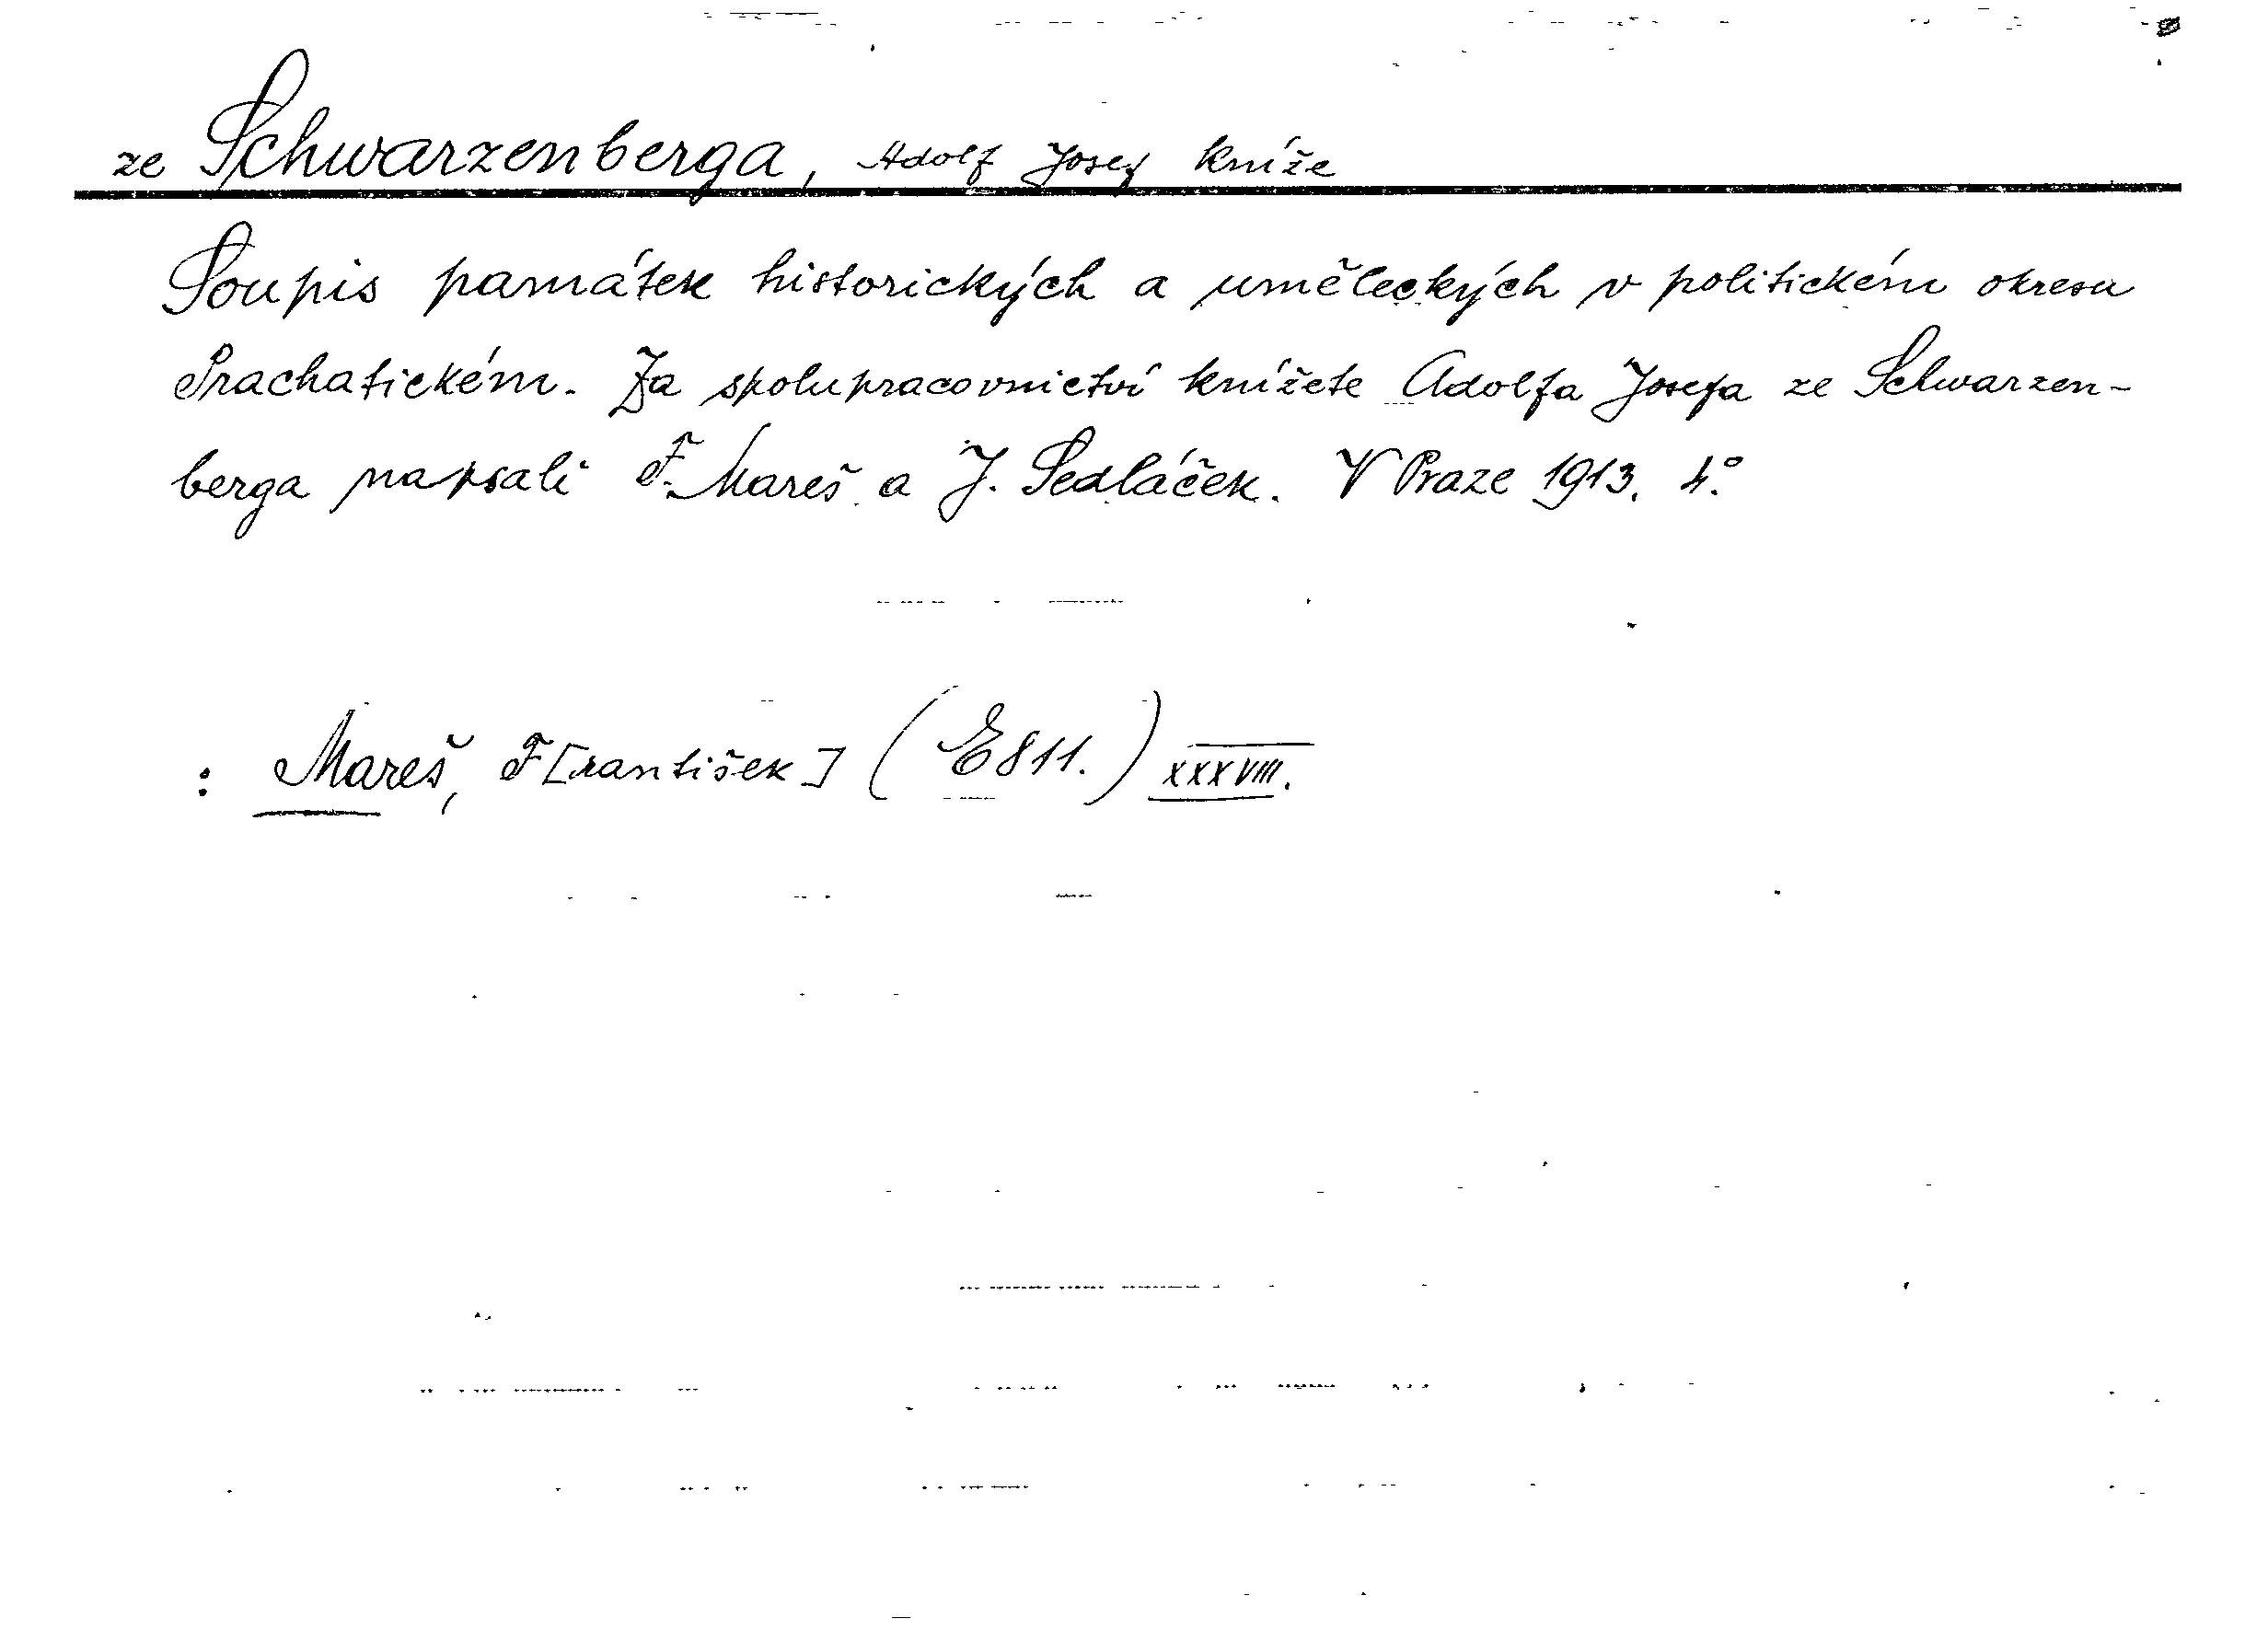 ze Schwarzenberga, Adolf Josef kníže
Soupis památek historických a uměleckých v politickém okresu
Prachatickém. Za spolupracovnictví knížete Adolfa Josefa ze Schwarzen-
berga napsali F. Mareš a J. Sedláček. V Praze 1913. 4°.
: Mareš, F[rantišek] (E811.) XXXVIII.